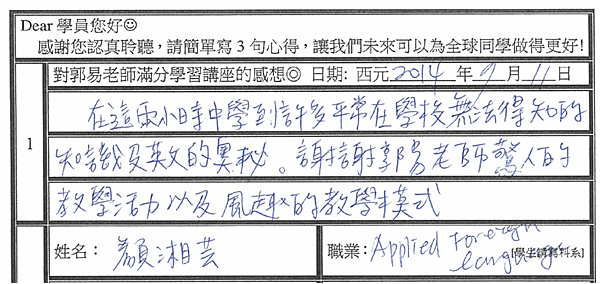 Dear 學員您好☺
感謝您認真聆聽，請簡單寫 3 句心得，讓我們未來可以為全球同學做得更好!
對郭易老師滿分學習講座的感想◎ 日期: 西元 2014 年 9 月 11 日
1
在這兩小時中學到許多平常在學校無法得知的
知識及英文的奧秘。謝謝郭易老師驚人的
教學活力以及風趣的教學模式
姓名： 顏湘芸
職業: Applied Foreign
language [學生請寫科系]